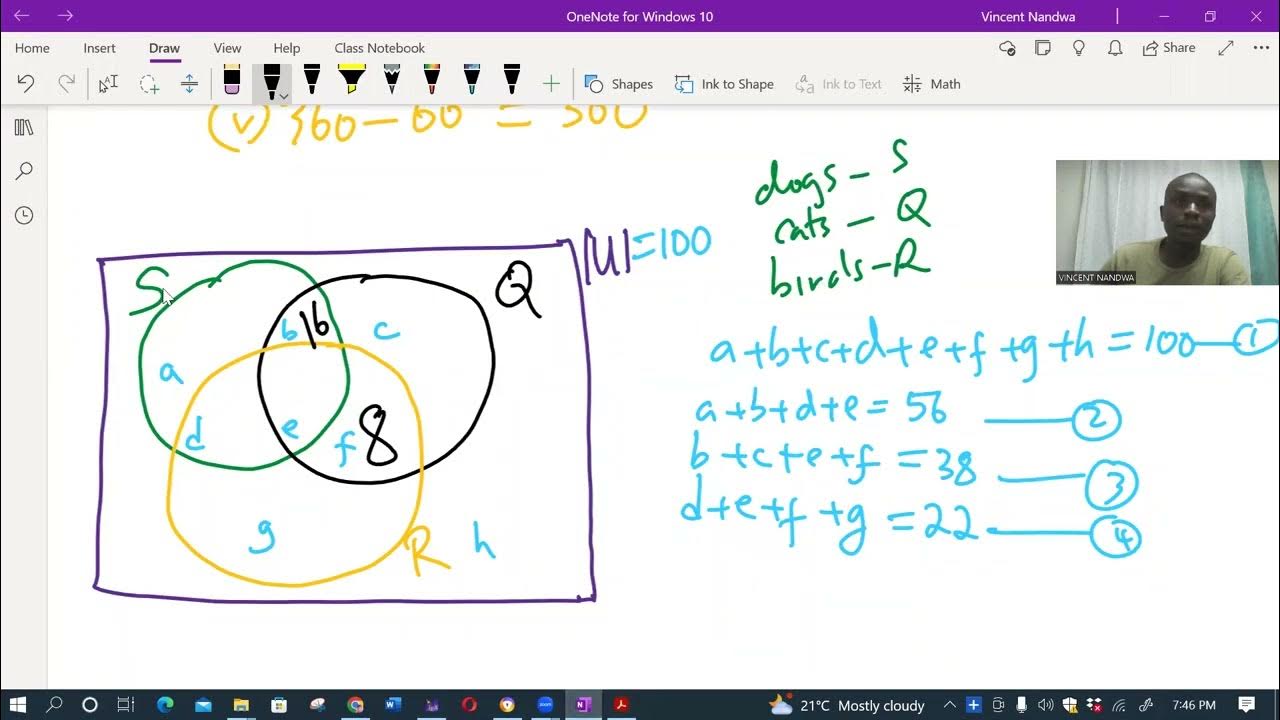 OneNote for Windows 10
Vincent Nandwa
Home Insert Draw View Help Class Notebook
Share
Shapes Ink to Shape Ink to Text Math
(v) 360 - 60 = 300
dogs - S
cats - Q
birds - R
VINCENT NANDWA
|U| = 100
S
Q
b 16 c
a
d e f 8
g
R
h
a+b+c+d+e+f+g+h = 100 — 1
a+b+d+e = 56 — 2
b+c+e+f = 38 — 3
d+e+f+g = 22 — 4
21°C Mostly cloudy
7:46 PM